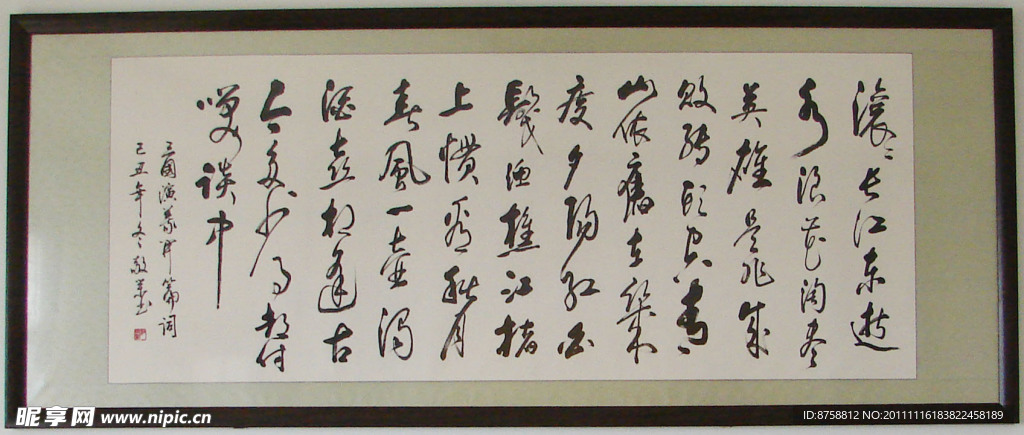 滚〻长江东逝
水浪花淘尽
英雄是非成
败转头空青
山依舊在幾
度夕陽红白
髮渔樵江渚
上惯看秋月
春風一壶濁
酒喜相逢古
今多少事都付
笑谈中
三國演義开篇词
己丑年冬敬
昵享网 www.nipic.cn
ID:8758812 NO:20111116183822458189